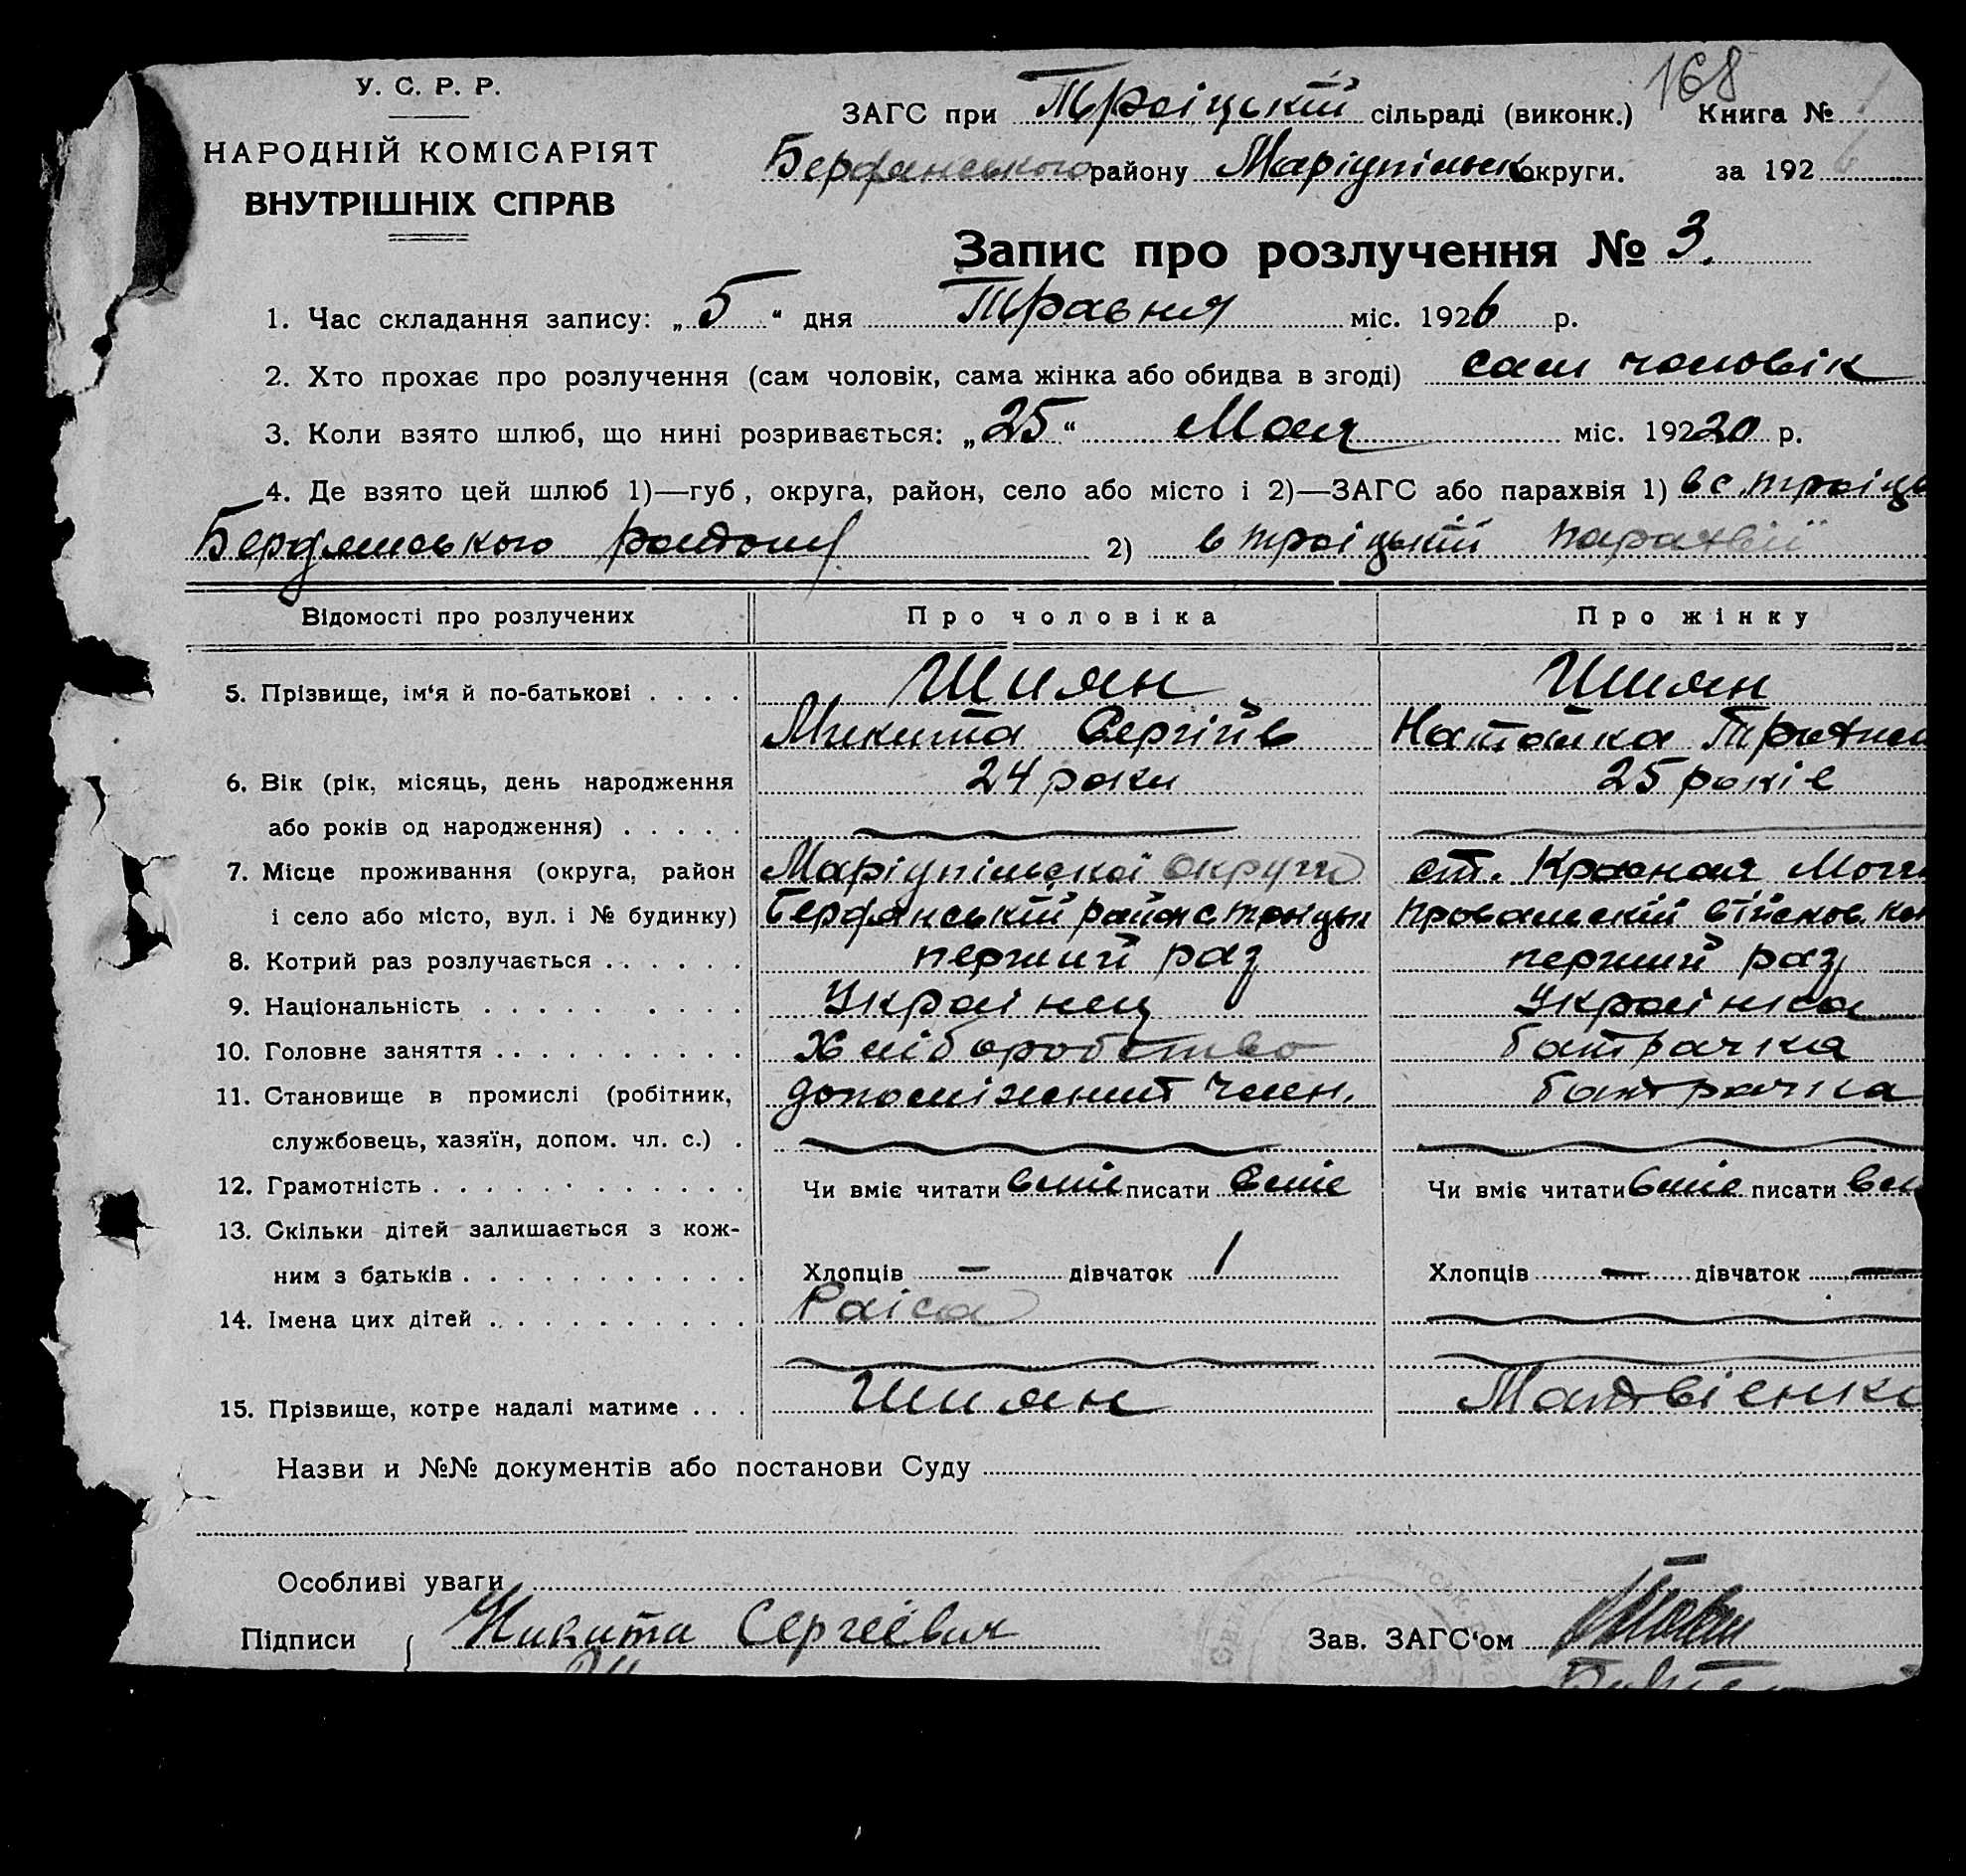 168
У. С. Р. Р.
НАРОДНІЙ КОМІСАРІЯТ
ВНУТРІШНІХ СПРАВ
ЗАГС при Троіцькій сільраді (виконк.) Книга № 1
Бердянського району Маріупільськ округи. за 192 6
Запис про розлучення № 3.
1. Час складання запису: „ 5 “ дня Травня міс. 1926 р.
2. Хто прохає про розлучення (сам чоловік, сама жінка або обидва в згоді) сам чоловік
3. Коли взято шлюб, що нині розривається: „ 25 “ Мая міс. 19220 р.
4. Де взято цей шлюб 1)—губ, округа, район, село або місто і 2)—ЗАГС або парахвія 1) в с. троіць
Бердянського району 2) в троіцькій парахвії
Відомості про розлучених Про чоловіка Про жінку
5. Прізвище, ім‘я й по-батькові . . . . Шиян Шиян
Микита Сергіїв Наталка
6. Вік (рік, місяць, день народження 24 роки 25 років
або років од народження) . . . . .
7. Місце проживання (округа, район Маріупільскої округи ст. Красная Моги
і село або місто, вул. і № будинку) Бердянський район с Троіцьк Провальскій війсков. кон
8. Котрий раз розлучається . . . . . . перший раз перший раз
9. Національність . . . . . . . . . Украінец Украінка
10. Головне заняття . . . . . . . . . . Хліборобство батрачка
11. Становище в промислі (робітник, допоміжний член. батрачка
службовець, хазяїн, допом. чл. с.) .
12. Грамотність . . . . . . . . . . . . Чи вміє читати вміє писати вміє Чи вміє читати вміє писати вм
13. Скільки дітей залишається з кож-
ним з батьків . . . . . . . . . . . Хлопців — дівчаток 1 Хлопців — дівчаток —
14. Імена цих дітей . . . . . . . . . . Раіса
15. Прізвище, котре надалі матиме . . . Шиян Матвієнко
Назви и №№ документів або постанови Суду
Особливі уваги
Підписи Никита Сергеевич Зав. ЗАГС‘ом